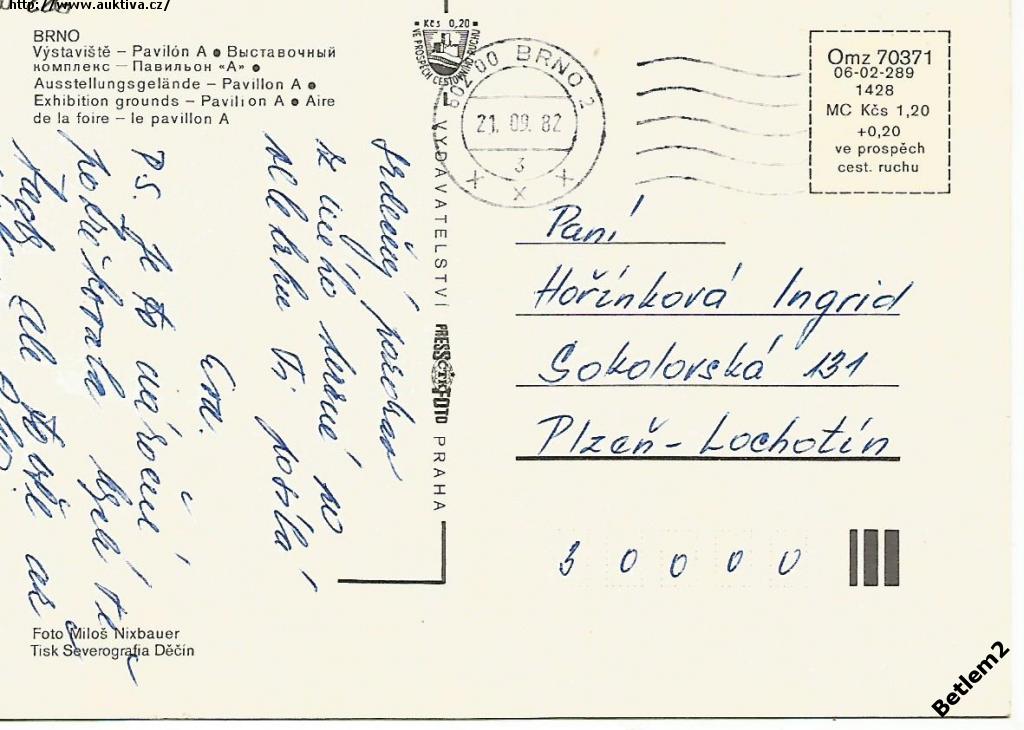 http://www.auktiva.cz/
BRNO
Výstaviště – Pavilón A ● Выставочный
комплекс – Павильон «А» ●
Ausstellungsgelände – Pavillon A ●
Exhibition grounds – Pavilion A ● Aire
de la foire – le pavillon A
Kčs 0,20
VE PROSPĚCH CESTOVNÍHO RUCHU
602 00 BRNO 2
21. 09. 82
3
Omz 70371
06-02-289
1428
MC Kčs 1,20
+0,20
ve prospěch
cest. ruchu
VYDAVATELSTVÍ PRESSFOTO PRAHA
ČTK
Srdečný pozdrav
z
veletrhu Ti posílá
P.S. Je to náročné
Paní
Hořínková Ingrid
Sokolovská 131
Plzeň - Lochotín
30000
Foto Miloš Nixbauer
Tisk Severografia Děčín
Betlem2